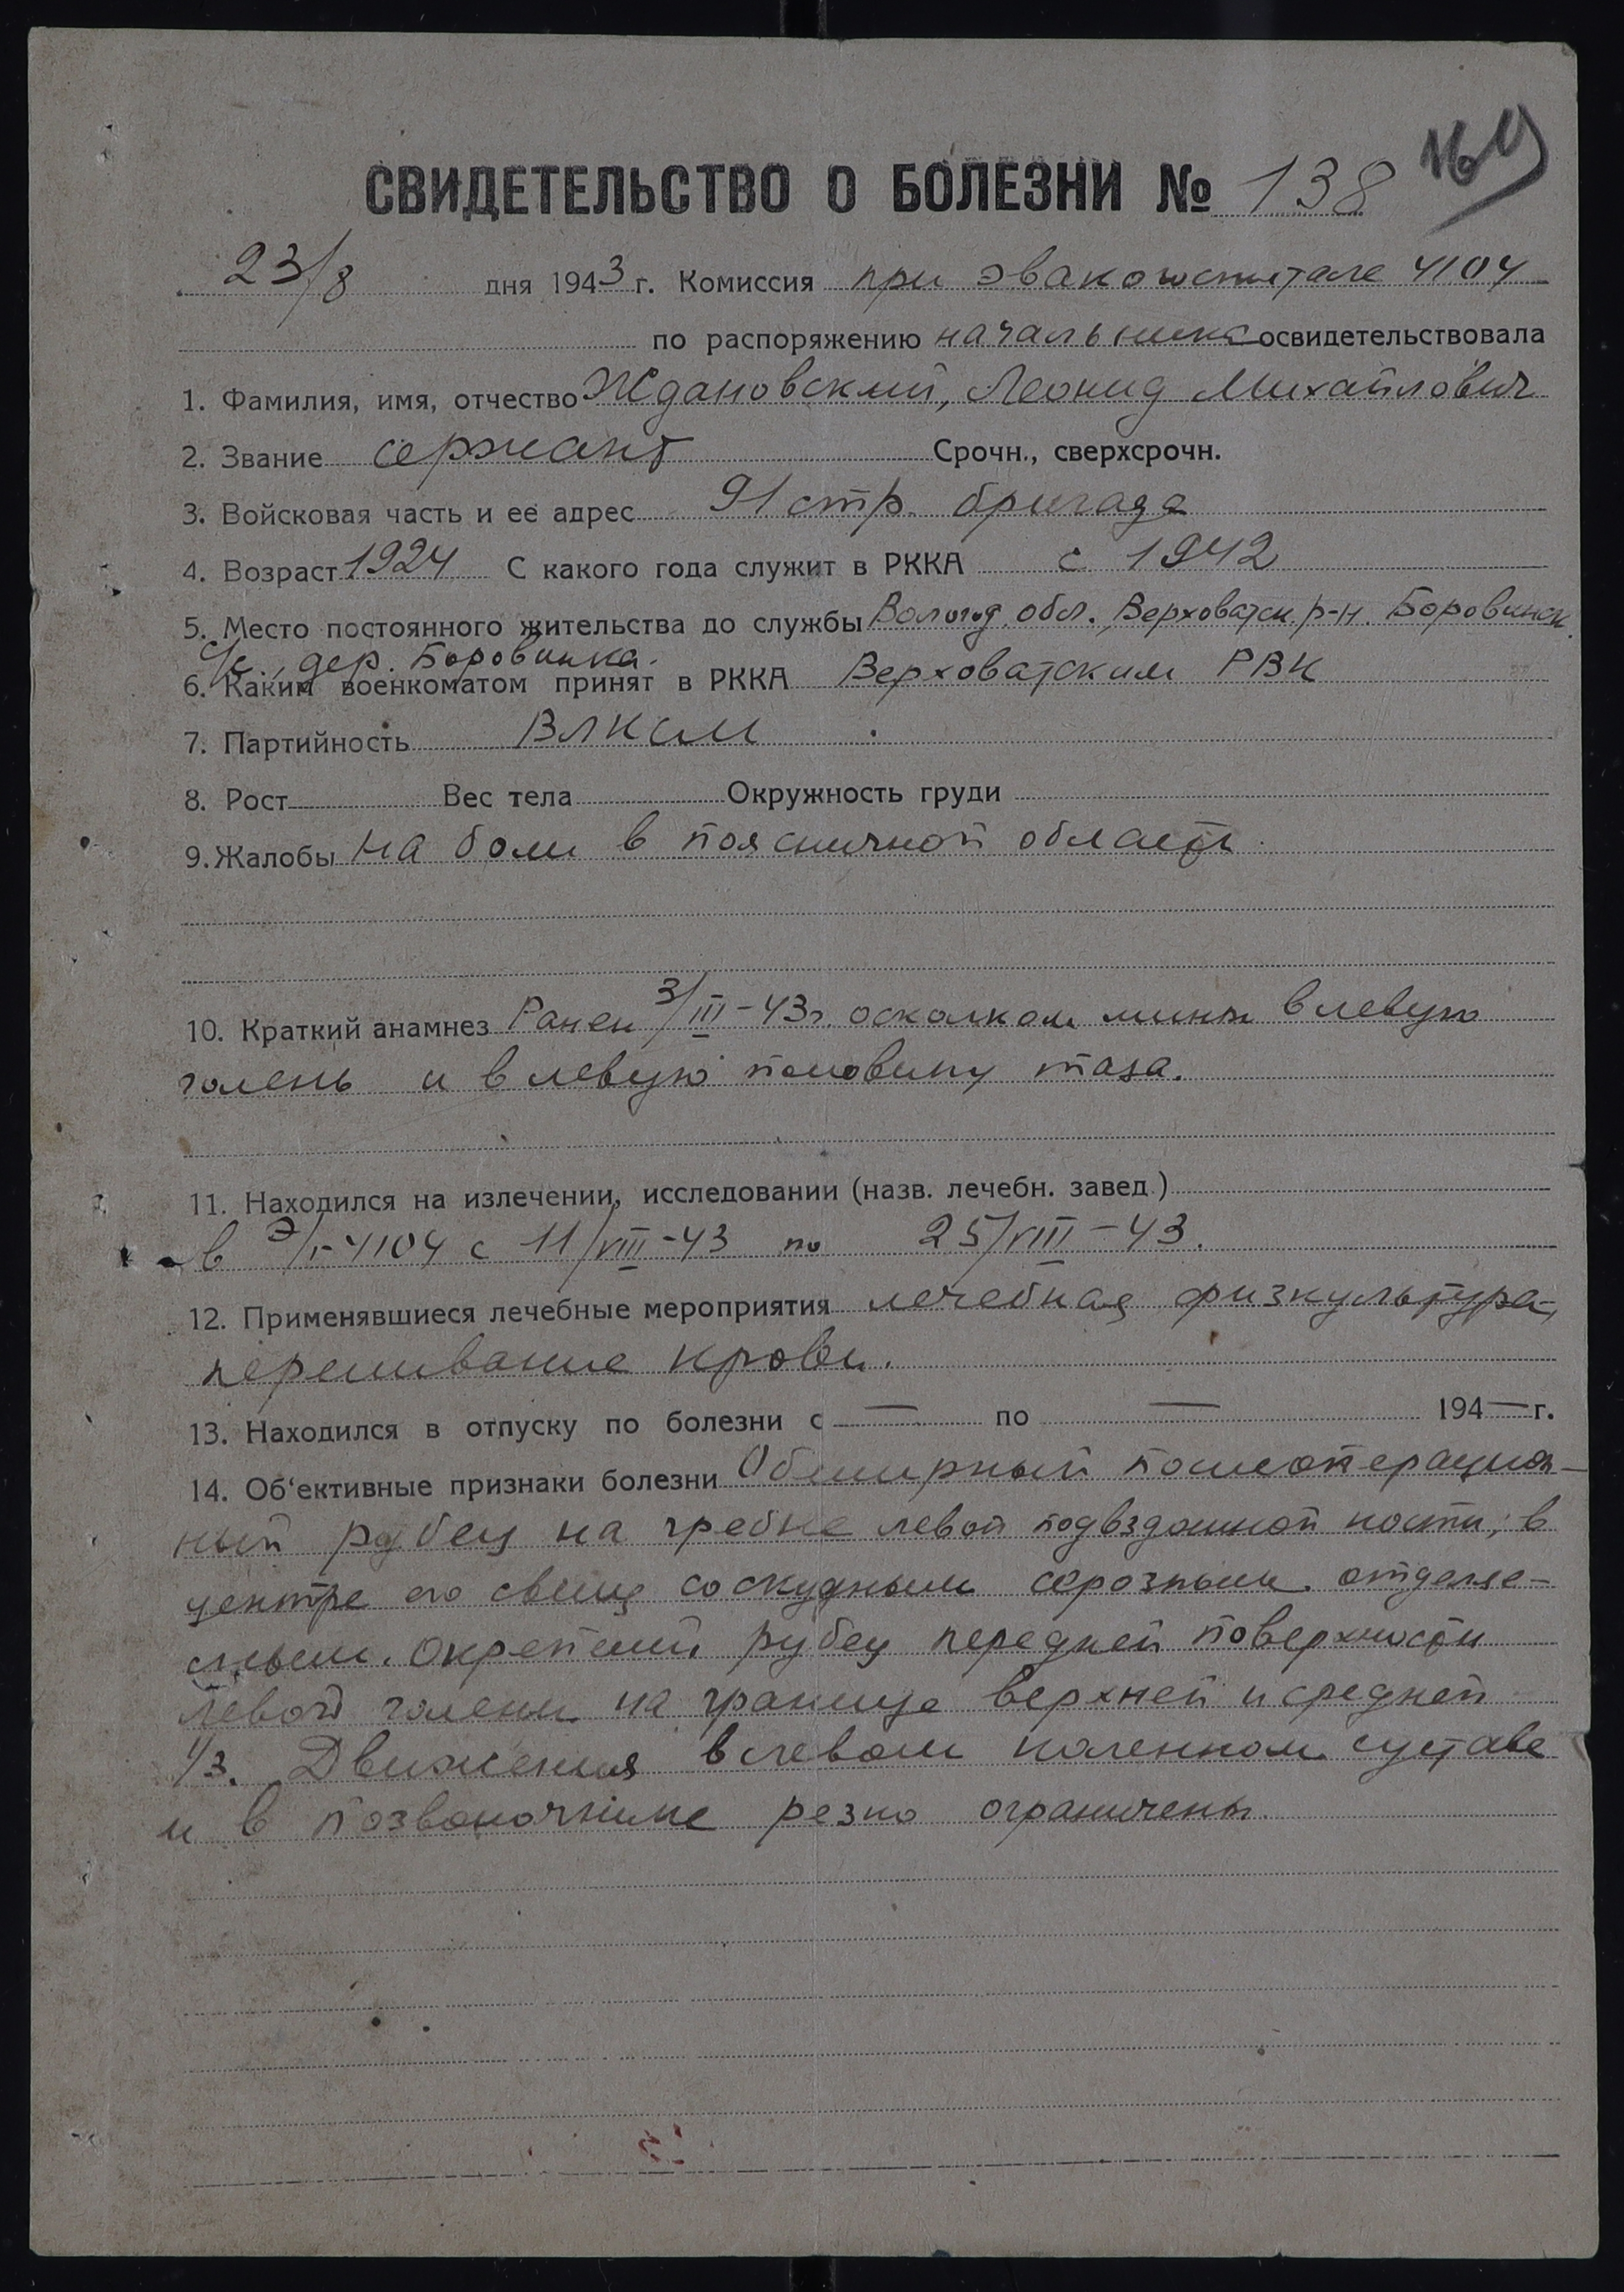 164
СВИДЕТЕЛЬСТВО О БОЛЕЗНИ № 138
23/8 дня 1943 г. Комиссия при эвакогоспитале 4104
по распоряжению начальника освидетельствовала
1. Фамилия, имя, отчество Ждановский, Леонид Михайлович
2. Звание сержант Срочн., сверхсрочн.
3. Войсковая часть и ее адрес 91 стр. бригада
4. Возраст 1924 С какого года служит в РККА с 1942
5. Место постоянного жительства до службы Вологод. обл., Верховатск. р-н. Боровинск.
с/с., дер. Боровинка.
6. Каким военкоматом принят в РККА Верховатским РВК
7. Партийность ВЛКСМ
8. Рост Вес тела Окружность груди
9. Жалобы на боли в поясничной области.
10. Краткий анамнез Ранен 3/III-43г. осколком мины в левую
голень и в левую половину таза.
11. Находился на излечении, исследовании (назв. лечебн. завед.)
в э/г-4104 с 11/VIII-43 по 25/VIII-43.
12. Применявшиеся лечебные мероприятия лечебная физкультура,
переливание крови.
13. Находился в отпуску по болезни с — по — 194— г.
14. Об‘ективные признаки болезни Обширный послеоперацион-
ный рубец на гребне левой подвздошной кости; в
центре его свищ со скудным серозным отделяе-
мым. Окрепший рубец передней поверхности
левой голени на границе верхней и средней
1/3. Движения в левом коленном суставе
и в позвоночнике резко ограничены.